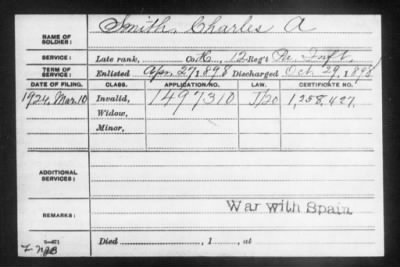 NAME OF SOLDIER: Smith, Charles A
SERVICE: Late rank, Co. K, 12 Reg't Pa. Inft.
TERM OF SERVICE: Enlisted Apr. 27, 1898 Discharged Oct. 29, 1898
DATE OF FILING. CLASS. APPLICATION NO. LAW. CERTIFICATE NO.
1924, Mar. 10 Invalid, 1497310 1,258,427.
Widow,
Minor,
ADDITIONAL SERVICES:
War with Spain
REMARKS:
Died , 1 , at